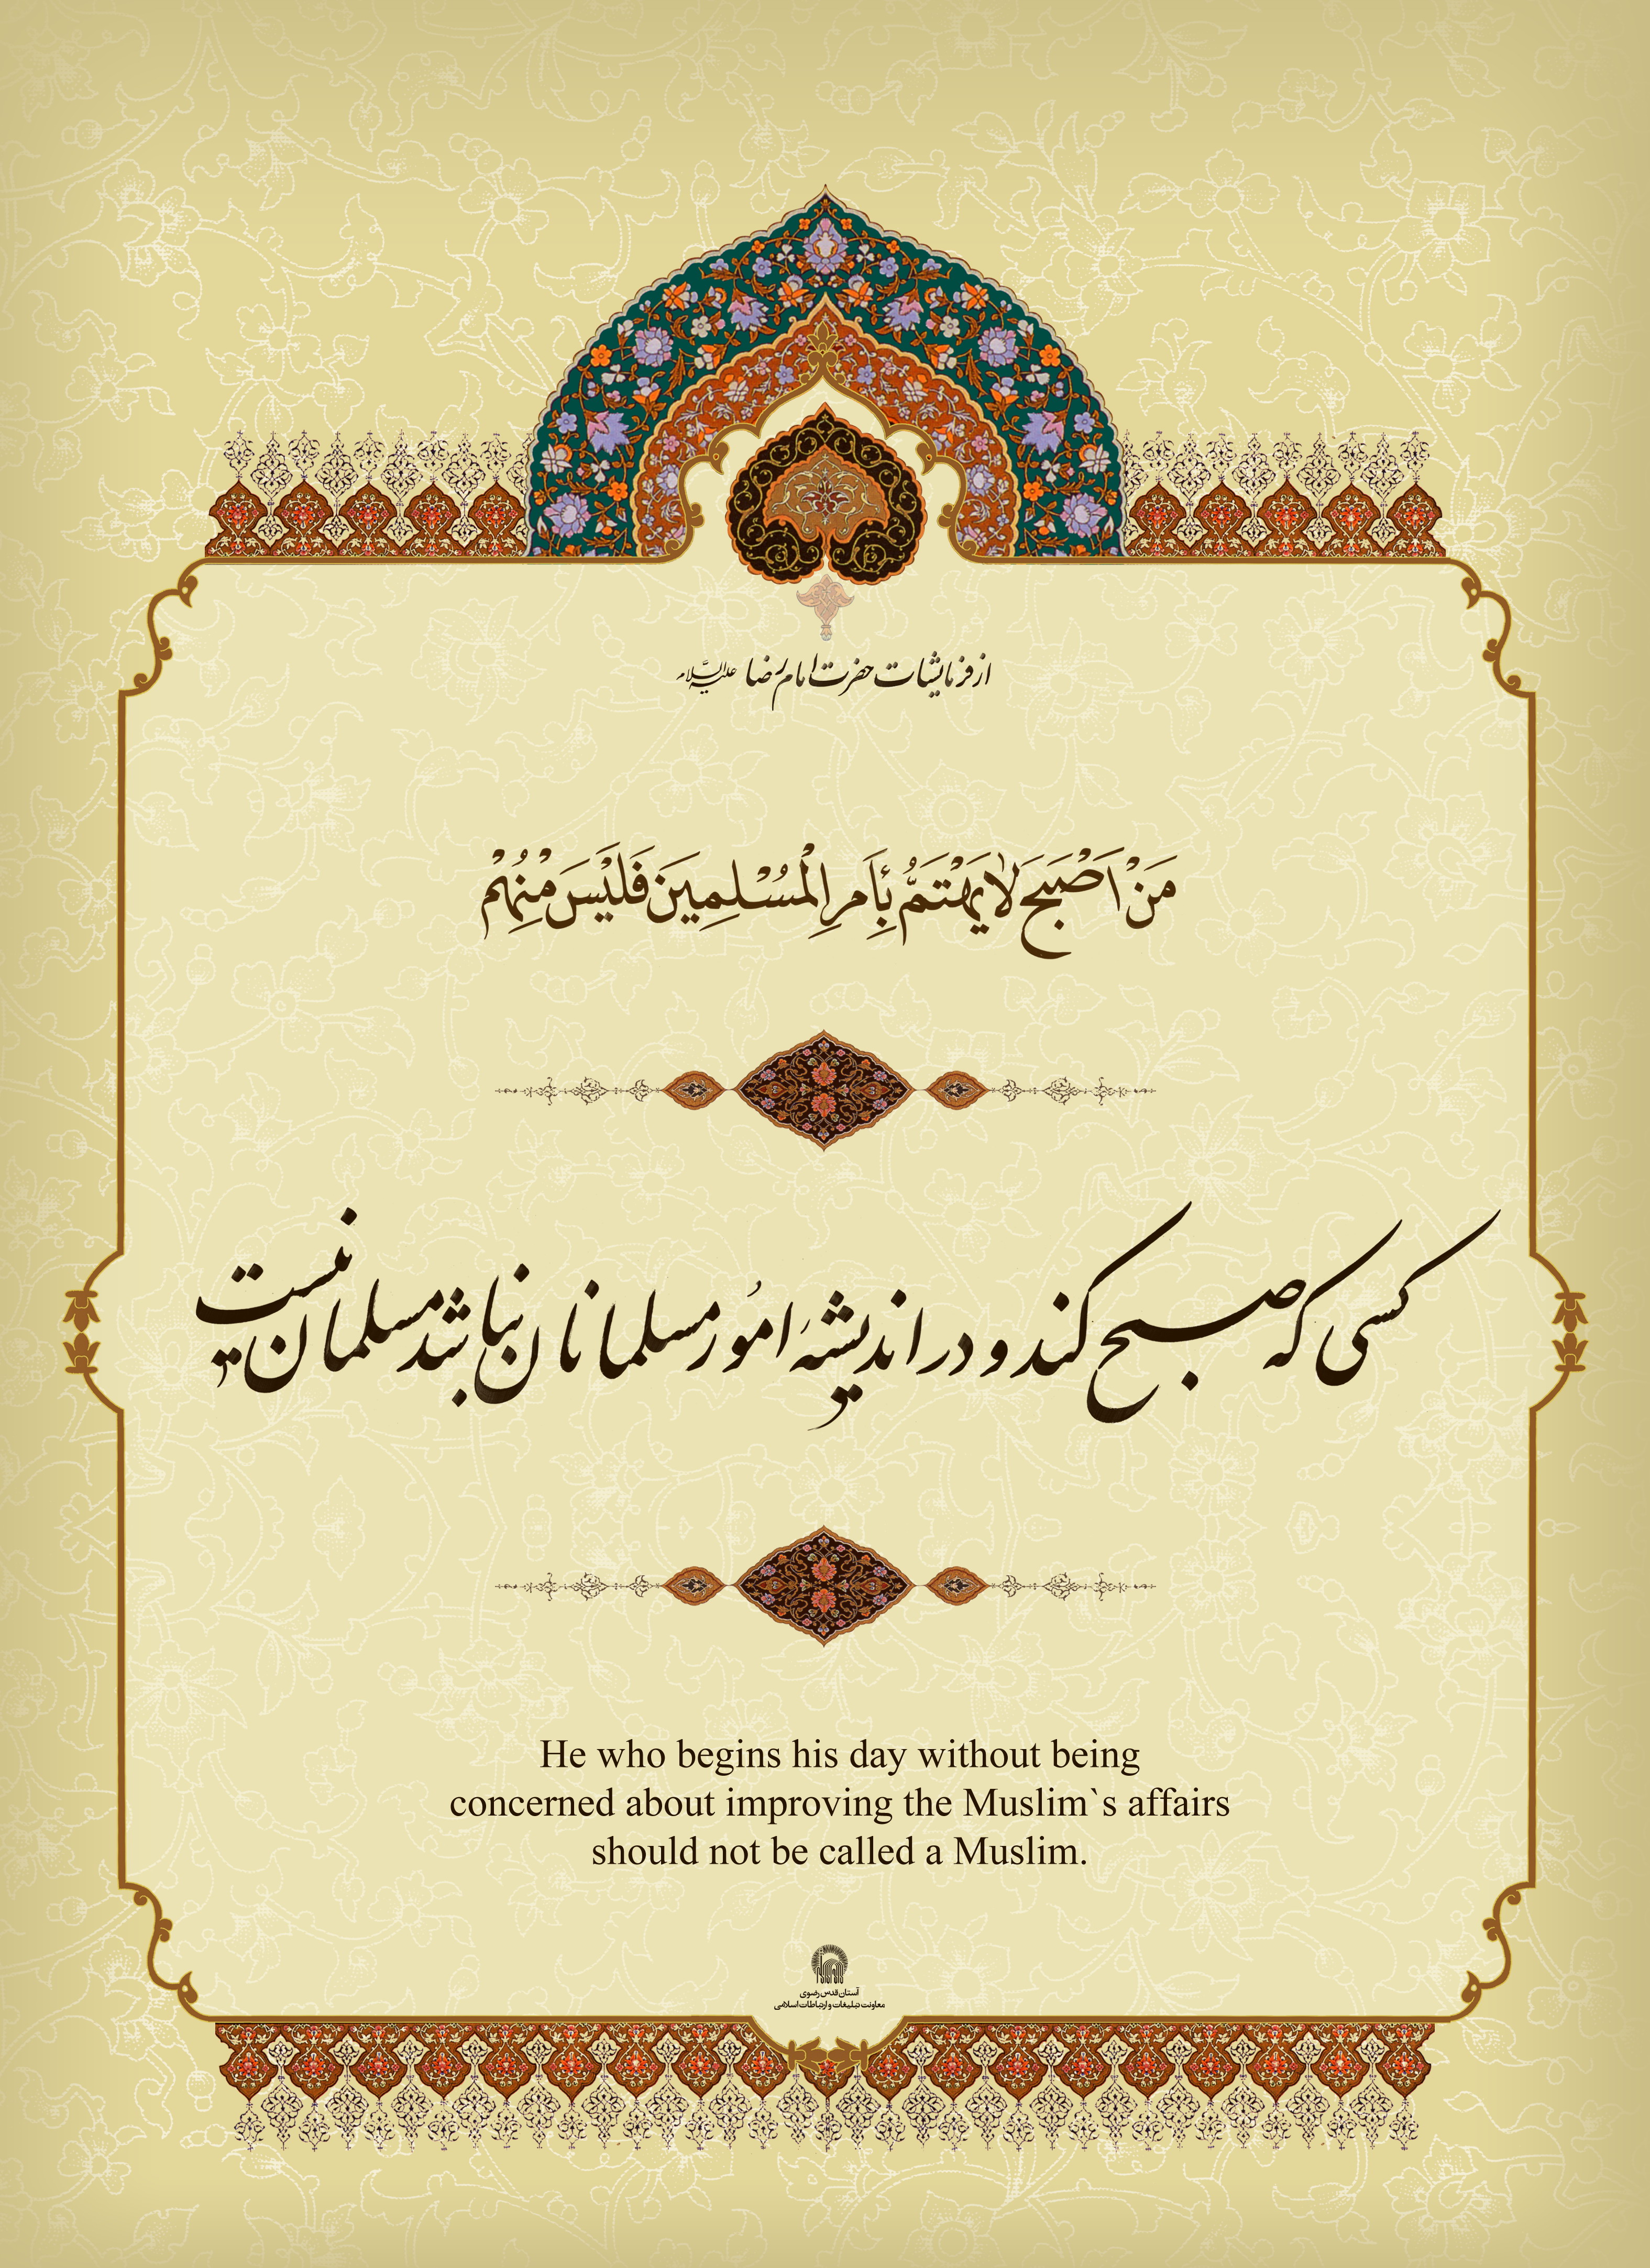 از فرمایشات حضرت امام رضا علیه‌السلام
مَنْ اَصْبَحَ لا یَهْتَمُّ بِأَمرِ الْمُسْلِمِینَ فَلَیْسَ مِنْهُمْ
کسی که صبح کند و در اندیشهٔ امُور مسلمانان نباشد مسلمان نیست
He who begins his day without being
concerned about improving the Muslim`s affairs
should not be called a Muslim.
آستان قدس رضوی
معاونت تبلیغات و ارتباطات اسلامی